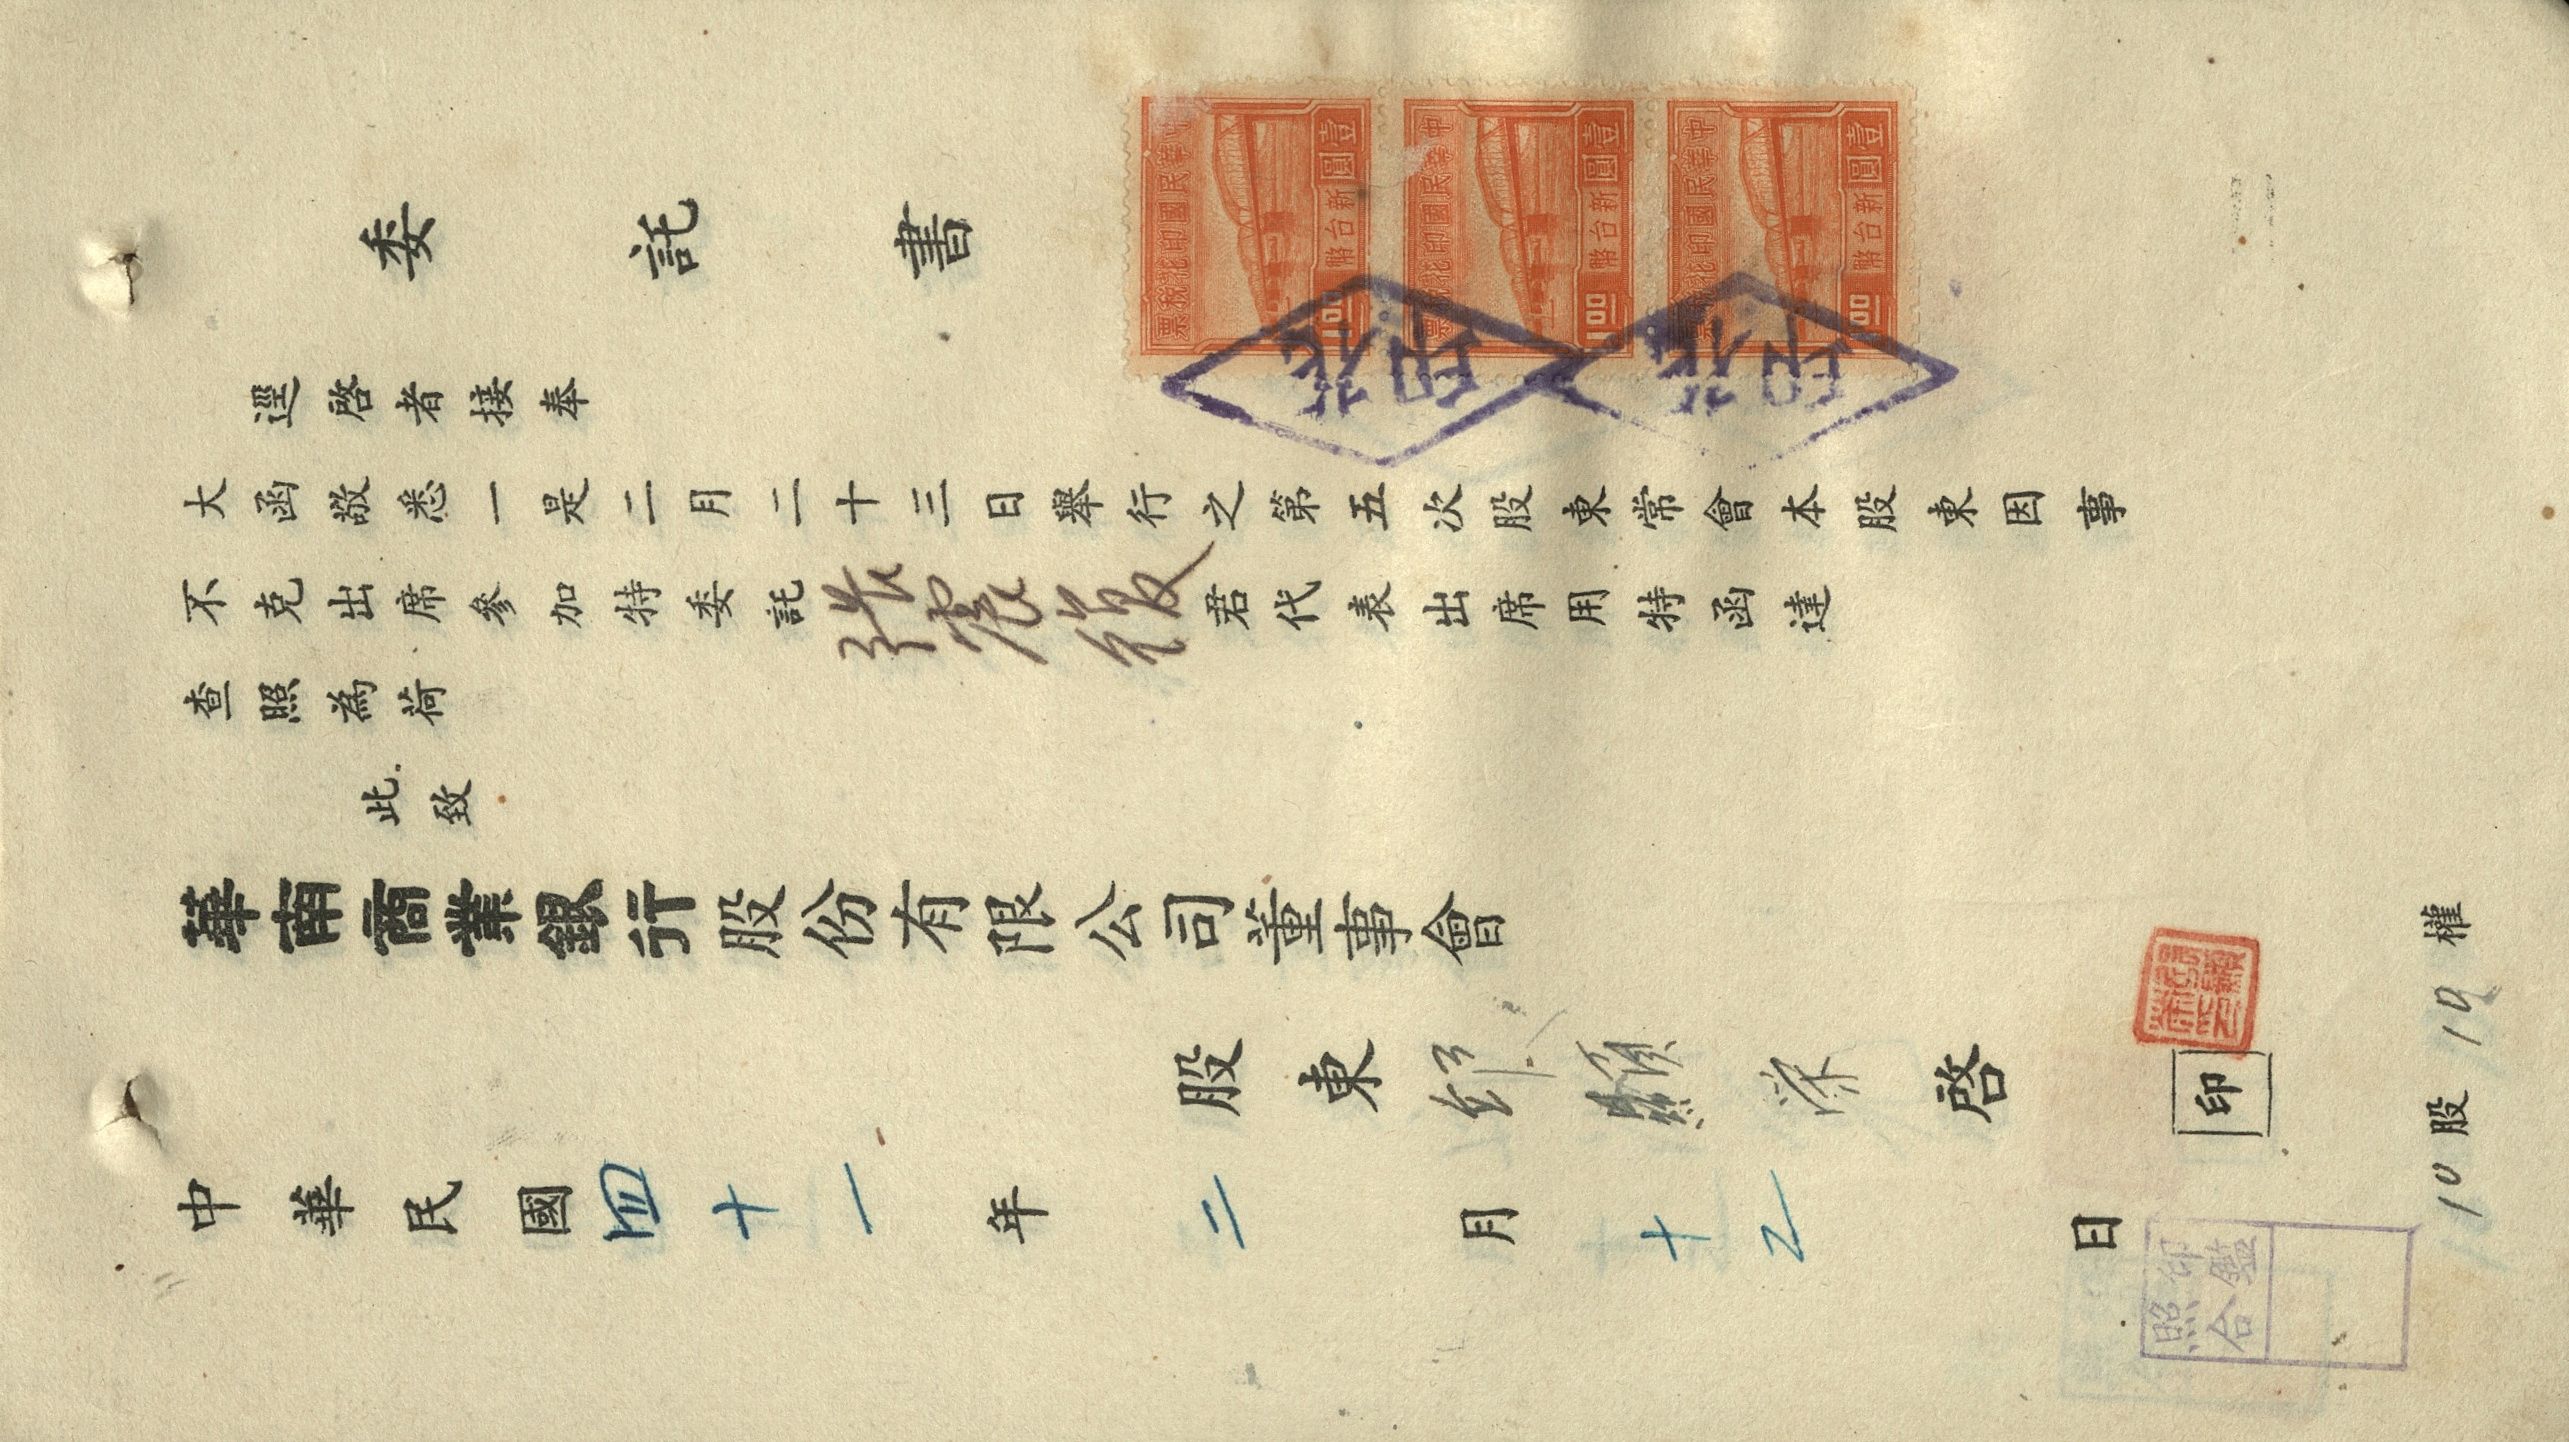 委託書
逕啓者接奉
大函敬悉一是二月二十三日舉行之第五次股東常會本股東因事
不克出席參加特委託張震嶽君代表出席用特函達
查照為荷
此致
華南商業銀行股份有限公司董事會
股東 顯榮啓
印
中華民國四十一年二月十五日
10股10權
中華民國印花稅票
壹圓
新台幣
1.00
中華民國印花稅票
壹圓
新台幣
1.00
中華民國印花稅票
壹圓
新台幣
1.00
印花
印花
印鑑
照合